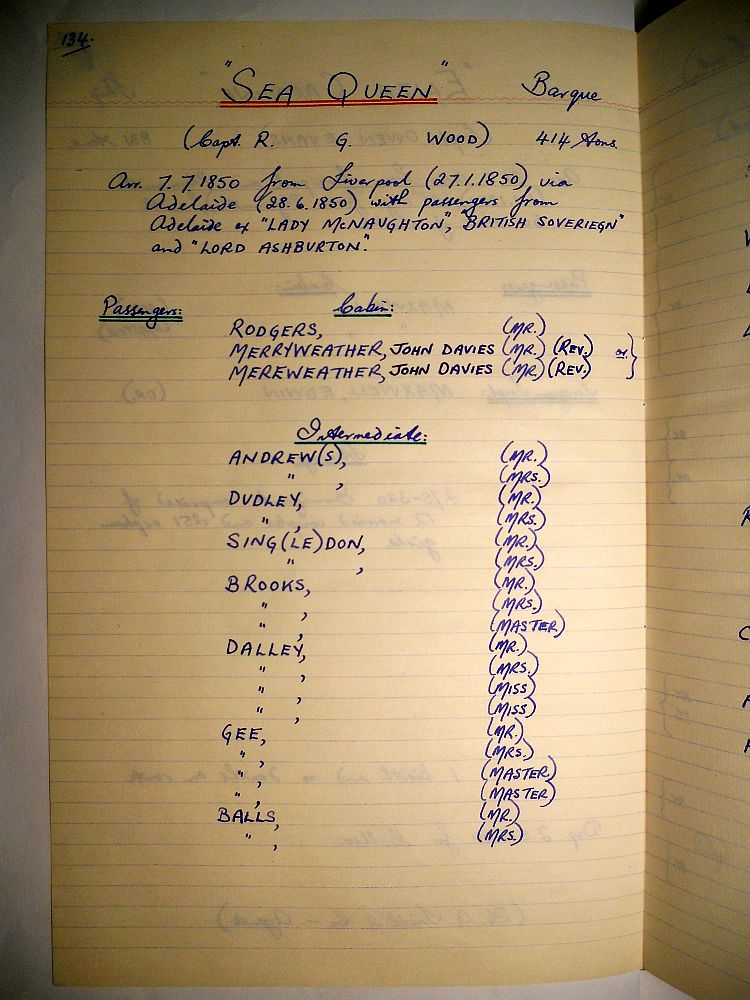 134.
"SEA QUEEN" Barque
(Capt. R. G. WOOD) 414 tons.
Arr. 7.7.1850 from Liverpool (27.1.1850) via
Adelaide (28.6.1850) with passengers from
Adelaide ex "LADY McNAUGHTON", "BRITISH SOVERIEGN"
and "LORD ASHBURTON".
Passengers: Cabin:
RODGERS, (MR.)
MERRYWEATHER, JOHN DAVIES (MR.) (REV.) or }
MEREWEATHER, JOHN DAVIES (MR.) (REV.)
Intermediate:
ANDREW(S), (MR.)
" , (MRS.)
DUDLEY, (MR.)
" , (MRS.)
SING(LE)DON, (MR.)
" , (MRS.)
BROOKS, (MR.)
" , (MRS.)
" , (MASTER)
DALLEY, (MR.)
" , (MRS.)
" , (MISS)
" , (MISS)
GEE, (MR.)
" , (MRS.)
" , (MASTER)
" , (MASTER)
BALLS, (MR.)
" , (MRS.)